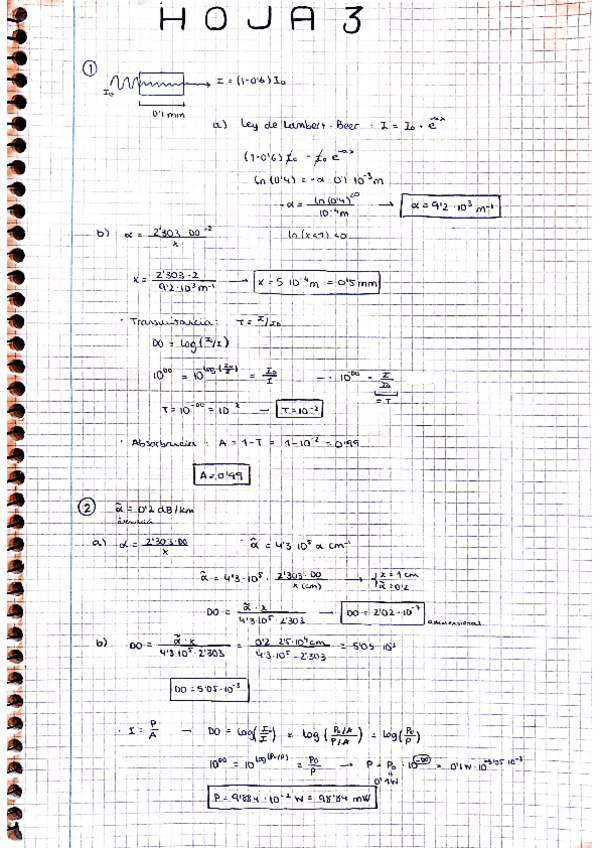 HOJA 3
①
I₀ I = (1-0'6) I₀
0'1 mm
a) Ley de Lambert-Beer · I = I₀ · e^-αx
(1-0'6) I₀ = I₀ e^-αx
ln(0'4) = -α · 0'1 · 10⁻³ m
-α = ln(0'4)^<0 / 10⁻⁴ m → α = 9'2 · 10³ m⁻¹
ln(x<1) <0
b) α = 2'303 · DO / x
x = 2'303 · 2 / 9'2 · 10³ m⁻¹ → x = 5 · 10⁻⁴ m = 0'5 mm
· Transmitancia: T = I/I₀
DO = log(I₀/I)
10^DO = 10^log(I₀/I) = I₀/I → 10^-DO = I/I₀ = T
T = 10^-DO = 10⁻² → T = 10⁻²
· Absorbancia: A = 1-T = 1-10⁻² = 0'99
A = 0'99
② α̃ = 0'2 dB/km
a) α = 2'303 · DO / x · α̃ = 4'3 · 10⁵ α cm⁻¹
α̃ = 4'3 · 10⁵ · 2'303 · DO / x (cm) → { x = 1 cm
α̃ = 0'2
DO = α̃ · x / 4'3 · 10⁵ · 2'303 → DO = 2'02 · 10⁻⁷ adimensional
b) DO = α̃ · x / 4'3 · 10⁵ · 2'303 = 0'2 · 2'5 · 10⁴ cm / 4'3 · 10⁵ · 2'303 = 5'05 · 10⁻³
DO = 5'05 · 10⁻³
· I = P/A → DO = log(I₀/I) = log(P₀/A / P/A) = log(P₀/P)
10^DO = 10^log(P₀/P) = P₀/P → P = P₀ · 10^-DO = 0'1 W · 10^-5'05·10⁻³
0'1 W
P = 9'884 · 10⁻² W = 98'84 mW